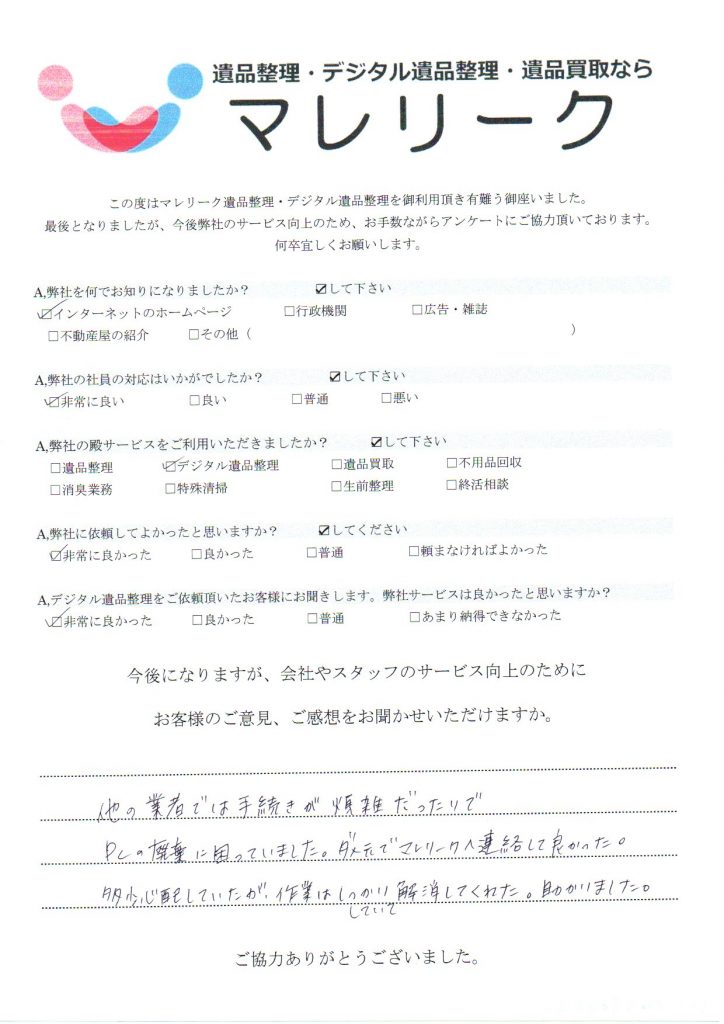 遺品整理・デジタル遺品整理・遺品買取なら
マレリーク
この度はマレリーク遺品整理・デジタル遺品整理を御利用頂き有難う御座いました。
最後となりましたが、今後弊社のサービス向上のため、お手数ながらアンケートにご協力頂いております。
何卒宜しくお願いします。
A,弊社を何でお知りになりましたか？ ☑して下さい
☑インターネットのホームページ □行政機関 □広告・雑誌
□不動産屋の紹介 □その他（ ）
A,弊社の社員の対応はいかがでしたか？ ☑して下さい
☑非常に良い □良い □普通 □悪い
A,弊社の殿サービスをご利用いただきましたか？ ☑して下さい
□遺品整理 ☑デジタル遺品整理 □遺品買取 □不用品回収
□消臭業務 □特殊清掃 □生前整理 □終活相談
A,弊社に依頼してよかったと思いますか？ ☑してください
☑非常に良かった □良かった □普通 □頼まなければよかった
A,デジタル遺品整理をご依頼頂いたお客様にお聞きします。弊社サービスは良かったと思いますか？
☑非常に良かった □良かった □普通 □あまり納得できなかった
今後になりますが、会社やスタッフのサービス向上のために
お客様のご意見、ご感想をお聞かせいただけますか。
他の業者では手続きが煩雑だったりで
PCの廃棄に困っていました。ダメ元でマレリークへ連絡して良かった。
多少心配していたが、作業はしっかり解消してくれた。助かりました。
していて
ご協力ありがとうございました。